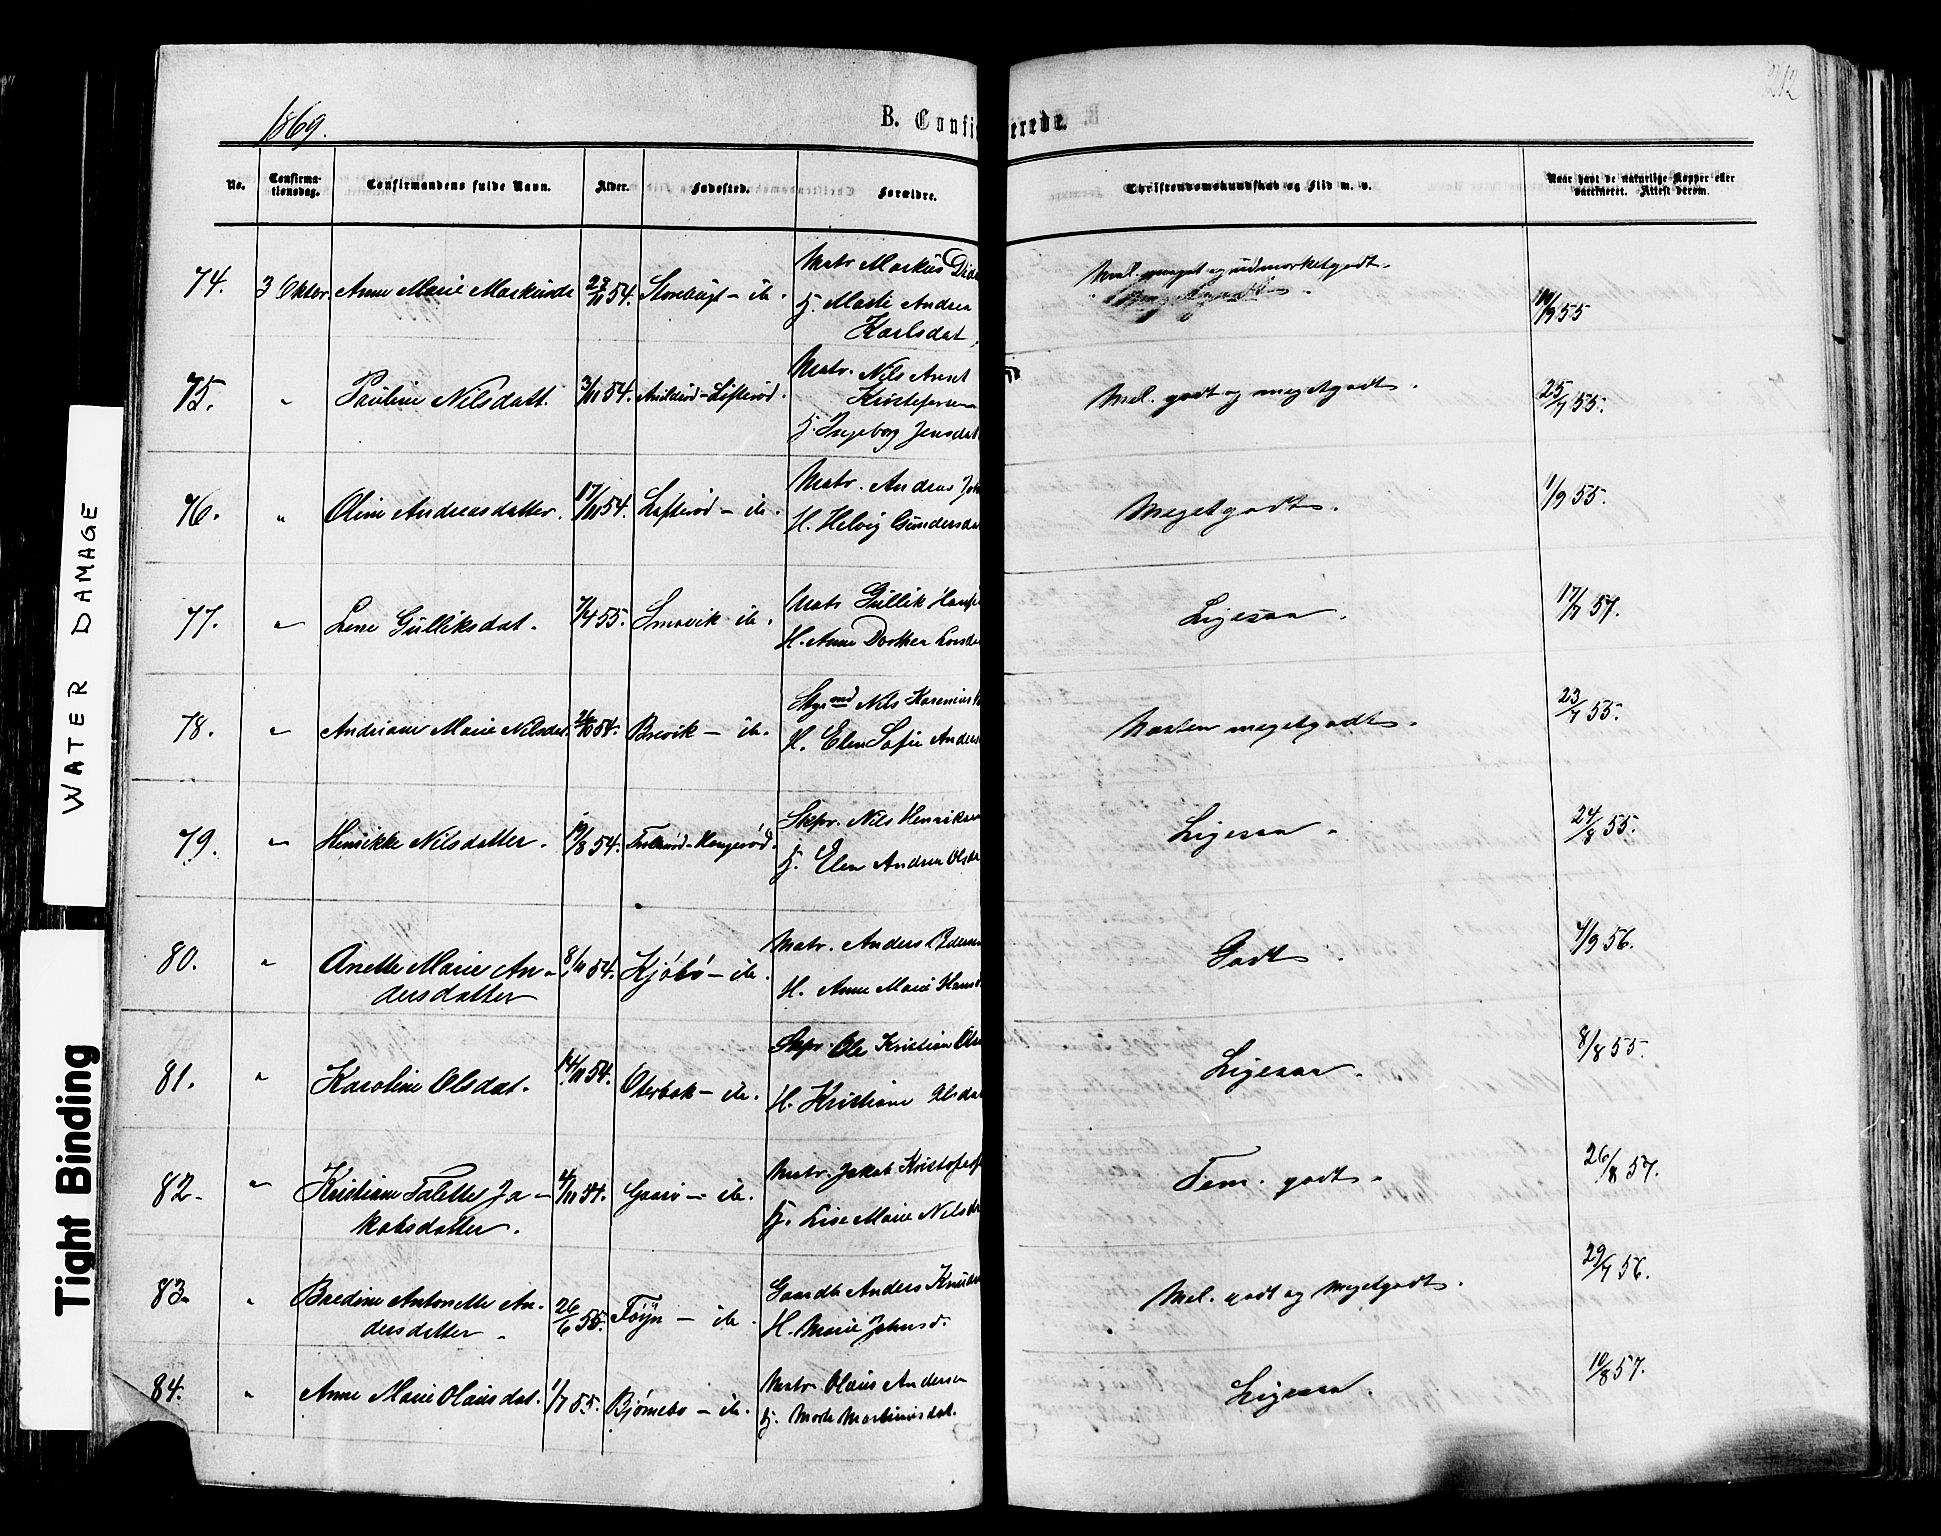 212
1869.
B. Confi erede.
No. Confirma-tionsdag. Confirmandens fulde Navn. Alder. Fødested. Forældre. Christendomskundskab og Flid m. v. Naar havt de naturlige Kopper eller vaccineret. Attest derom.
74. 3 Oktbr. Anne Marie Markusdt 23/11 54. - ib. Matr Markus
Hj. Andrea
Karlsdat
Mel. meget og udmærketgodt. 19/9 55
75. " Pauline Nilsdatt. 3/11 54. Matr. Nils
Kristofersen
Hj. Ingeborg Jensdat
Mel. godt og megetgodt. 25/7 55.
76. " Oline Andreasdatter. 17/11 54. Løfterød - ib. Matr. Andreas Joh
H. Helvig Gundersda
Megetgodt. 1/9 55.
77. " Lene Gulliksdat. 7/4 55. Smøvik - ib. Matr Gullik Hans
H. Anne Dorthea
Ligesaa. 17/7 57.
78. " Andriane Marie Nilsdat. 54. Brevik - ib. Styrmd Nils
H. Elen Sofie Anders
Næsten megetgodt. 23/7 55.
79. " Henrikke Nilsdatter. 19/8 54. Matr. Nils Henriksen
Hj. Elen Andrea Olsda
Ligesaa. 24/8 55.
80. " Anette Marie An-
dersdatter 8/11 54. Kjøbø - ib. Matr. Anders Pedersen
H. Anne Marie Hansd
Godt. 4/9 56.
81. " Karoline Olsdat. 14/11 54. Oterbæk - ib. Skpr. Ole Kristian Olse
H. Kristiane Olsdat
Ligesaa. 8/8 55.
82. " Kristiane Talette Ja-
kobsdatter. 4/11 54. Gaasø - ib. Matr. Jakob Kristofers
Hj. Lise Marie Nilsda
Tem. godt. 26/8 57.
83. " Bredine Antonette An-
dersdatter. 26/6 55. Føyn - ib. Gaardb Anders Knuds
H. Marie Johnsd.
Mel. godt og megetgodt. 29/7 56.
84. " Anne Marie Olausdat. 1/7 55. Bjørnebo - ib. Matr Olaus Andersen
Hj. Martinusdat.
Ligesaa. 10/8 57.
WATER DAMAGE
Tight Binding